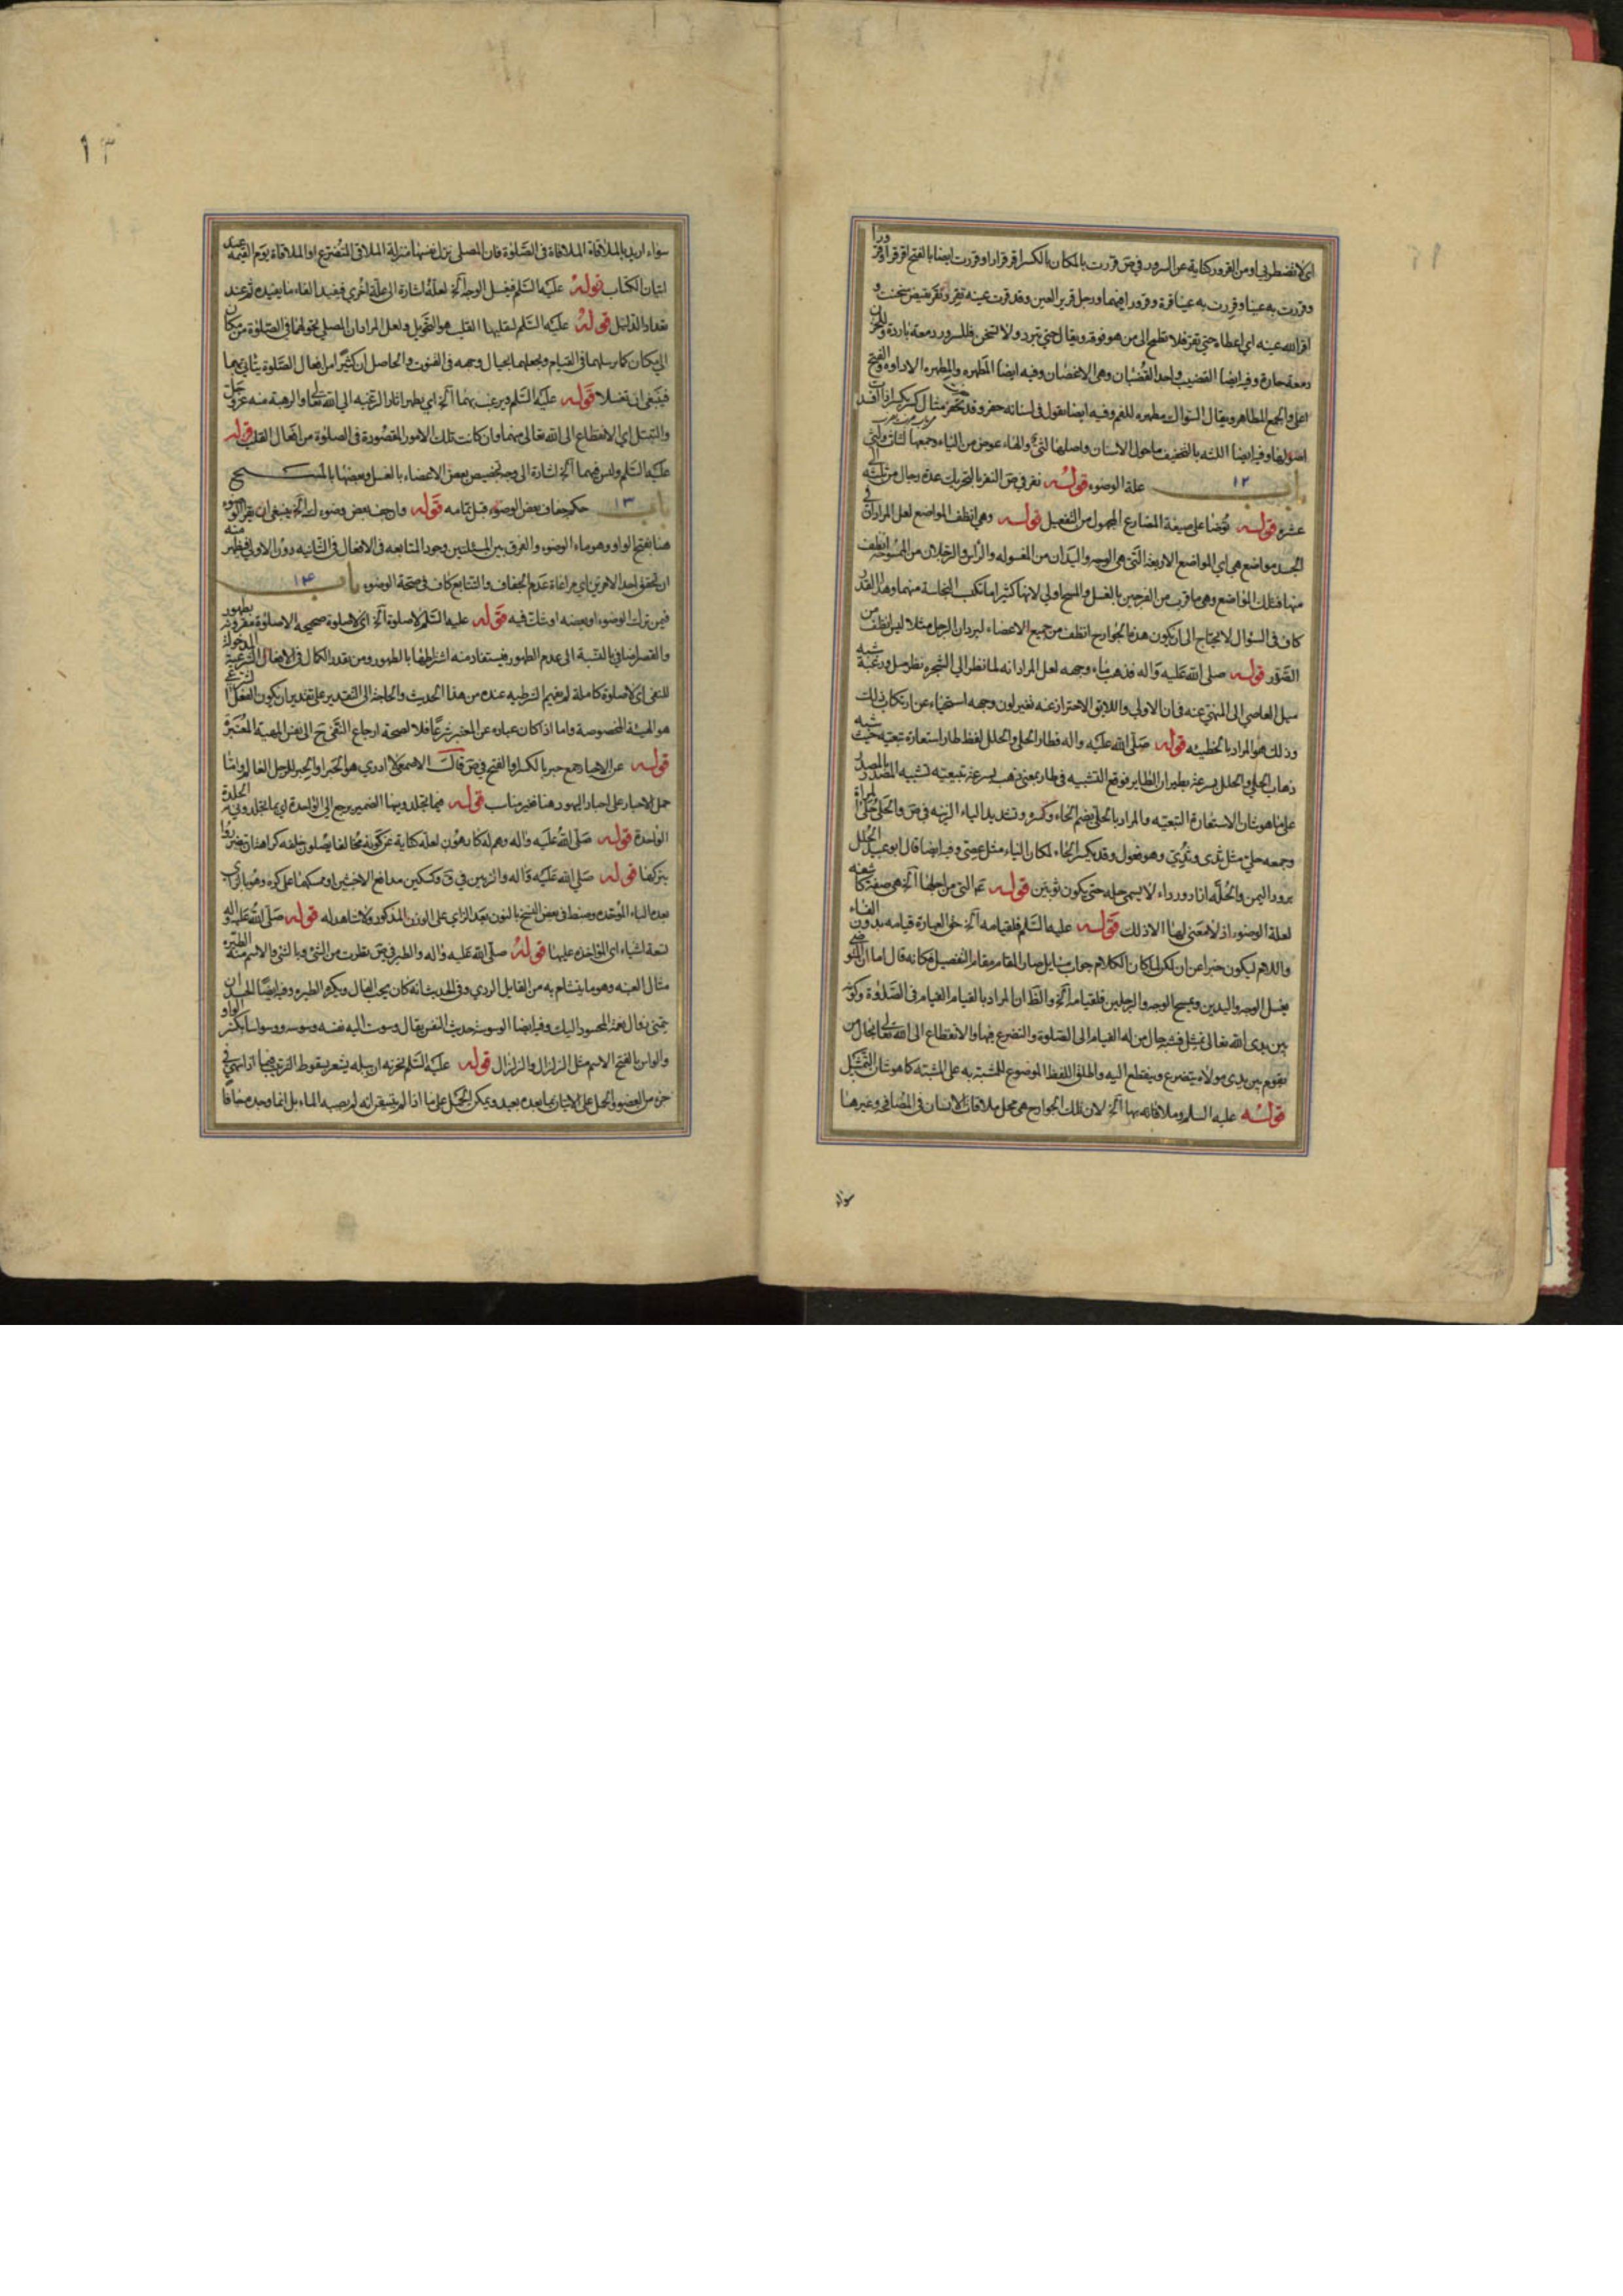 اى لا تضطربى او من القرور كناية عن السرور فى ص قررت بالمكان بالكسر اقر قرارا و قررت ايضا بالفتح اقر قرارا و قرورا
و قررت به عينا و قررت به عينا قرة و قرورا فيهما و رجل قرير العين و قد قرت عينه تقر و تقر نقيض سخنت و
اقر الله عينه اى اعطاه حتى تقر فلا تطمح الى من هو فوقه و يقال حتى تبرد و لا تسخن فللسرور دمعة باردة و للحزن
دمعة حارة و فيه ايضا القضيب واحد القضبان و هى الاغصان و فيه ايضا المطهره و المطهره الاداوه و الفتح
اعلى و الجمع المطاهر و يقال السواك مطهره للفم و فيه ايضا يقول فى اسنانه حفر و قد حفرت مثال كسر كسرا اذا افسدت
اصولها و فيه ايضا اللثه بالتخفيف ما حول الاسنان و اصلها لثى و الهاء عوض من الياء و جمعها لثات و لثى
باب ١٢ علة الوضوء قوله نفر فى ص النفر بالتحريك عدة رجال من ثلثه الى
عشره قوله توضا على صيغة المضارع المجهول من التفعيل قوله و هى انظف المواضع لعل المراد ان فى
الجسد مواضع هى اى المواضع الاربعة التى هى الوجه و اليدان من المغسوله و الراس و الرجلان من الممسوحه انظف
منها فتلك المواضع و هى ما قرب من الفرجين بالغسل و المسح اولى لانها كثيرا ما تكسب النجاسة منهما و هذا القدر
كاف فى السؤال لا يحتاج الى ان يكون هذه الجوارح انظف من جميع الاعضاء ليرد ان الرجل مثلا ليس انظف من
الصدر قوله صلى الله عليه و آله فذهب ماء وجهه لعل المراد انه لما نظر الى الشجره نظر ميل و رغبة شبه
ميل العاصى الى المنهى عنه فان الاولى و اللايق الاحتراز عنه تغير لون وجهه استحياء عن ارتكاب ذلك
و ذلك هو المراد بالخطيئه قوله صلى الله عليه و اله فطار الحلى و الحلل لفظ طار استعارة تبعيه حيث شبه
ذهاب الحلى و الحلل بسرعة بطيران الطاير فوقع التشبيه فى طار بمعنى ذهب بسرعة تبعيته تشبيه المصدر بالمصدر
على ما هو شان الاستعارة التبعيه و المراد بالحلى بضم الحاء و كسره و تشديد الياء الزينه فى ص و الحلى حلى المراة
و جمعه حلى مثل ثدى و ثدى و هو فعول و قد يكسر الحاء لمكان الياء مثل عصى و فيه ايضا قال ابو عبيد الحلل
برود اليمن و الحلة ازار و رداء لا يسمى حله حتى يكون ثوبين قوله ثم التى من اجلها آلخ هى صفة كاشفه
لعلة الوضوء اذ لا معنى لها الا ذلك قوله عليه السلم فلقيامه آلخ حق العبارة قيامه بدون الفاء
و اللام ليكون خبرا عن ان لكن لما كان الكلام جواب سايل صار المقام مقام التفصيل فكانه قال اما ان المتوضى
يغسل الوجه و اليدين و يمسح الوجه و الرجلين فلقيامه آلخ و الظ ان المراد بالقيام القيام فى الصلوة و كونه
بين يدى الله تعالى تمثيل فشبه حال من له القيام الى الصلوة و التضرع فيها و الانقطاع الى الله تعالى بحال من
يقوم بين يدى مولاه يتضرع و ينقطع اليه و اطلق اللفظ الموضوع للمشبه به على المشبه كما هو شان التمثيل
قوله عليه السلم و ملاقاته بها آلخ لان تلك الجوارح هى محل ملاقات الانسان فى المصافح و غيرها
سواء
١٣
سواء اريد بالملاقاة الملاقاة فى الصلوة فان المصلى نزل نفسها منزلة الملاقى المتضرع او الملاقاة يوم القيمة عند
اتيان الكتاب قوله عليه السلم فيغسل الوجه آلخ لعله اشارة الى علة اخرى فيفيد الفاء ما يفيده ثم عند
تعداد الدلائل قوله عليه السلم لتقليبها القلب هو التحويل و لعل المراد ان المصلى يحولهما فى الصلوة من مكان
الى مكان كما يرسلهما فى القيام و يجعلهما بحيال وجهه فى القنوت و الحاصل ان كثيرا من افعال الصلوة يتاتى بهما
فينبغى ان تغسلا قوله عليه السلم و يرغب بهما آلخ اى يظهر اثار الرغبه الى الله تعالى و الرهبة منه عز و جل
و التبتل اى الانقطاع الى الله تعالى بهما و ان كانت تلك الامور المقصورة فى الصلوة من افعال القلب قوله
عليه السلم و ليس فيهما آلخ اشارة الى وجه تخصيص بعض الاعضاء بالغسل و بعضها بالمسح
باب ١٣ حكم جفاف بعض الوضوء قبل تمامه قوله و ان جف بعض وضوءك آلخ ينبغى ان يقرء الوضوء
هنا بفتح الواو و هو ماء الوضوء و الفرق بين المسئلتين وجود المتابعه فى الافعال فى الثانيه دون الاولى فيظهر منه
ان تحقق احد الامرين اى مراعاة عدم الجفاف و التتابع كاف فى صحة الوضوء باب ١٤
فيمن ترك الوضوء او بعضه او شك فيه قوله عليه السلم لا صلوة آلخ اى لا صلوة صحيحه الا صلوة مقرونة بطهور
و القصر اضافى بالنسبة الى عدم الطهور فيستفاد منه اشتراطها بالطهور و من يقدر الكمال فى الافعال الشرعية المدخولة
للنفى اى لا صلوة كاملة لم يقم الشرطيه عنده من هذا الحديث و الحاجة الى التقدير على تقدير ان يكون الفعل الشرعى
هو الهيئة المخصوصة و اما اذا كان عبارة عن المعتبر شرعا فلا لصحة ارجاع النفى ح الى نفس المهية المعتبرة
قوله عن الاحبار جمع حبر بالكسر او الفتح فى ص قالت الاصمعى لا ادرى هو الحبر او الحبر للرجل العالم و اما
حمل الاحبار على احبار اليهود هنا فغير مناسب قوله فيما تجلد و بهما الضمير يرجع الى الواحدة الجلدة
الواحدة قوله صلى الله عليه و اله و هم له كارهون لعله كناية عن كونه مخالفا يصلون خلفه كراهة ان يضروا
بتركها قوله صلى الله عليه و آله و الزبين فى ق و كسكين مدافع الاخبثين او ممسكهما على كره و هو بالزاى
بعده الباء الموحده و ضبط فى بعض النسخ بالنون بعد الزاى على الوزن المذكور و لا شاهد له قوله صلى الله عليه و آله
تسعة اشياء اى المؤاخذه عليها قوله صلى الله عليه و اله و الطير فى ص تطيرت من الشئ و بالشئ و الاسم منه الطيره
مثال العنبه و هو ما يتشام به من الفال الردى و فى الحديث انه كان يحب الفال و يكره الطيره و فيه ايضا الحسد ان
تتمنى زوال نعمة المحسود اليك و فيه ايضا الوسوسه حديث النفس يقال وسوست اليه نفسه وسوسه و وسواسا بكسر الواو
و الوسواس بالفتح الاسم مثل الزلزال و الزلزال قوله عليه السلم يجزيه ان يبله يشعر بسقوط الترتيب فيما اذا نسى فى
جزء من العضو و الحمل على الاتيان بما بعده بعيد و يمكن الحمل على ما اذا لم يتيقن انه لم يصبه الماء بل انما وجده جافا